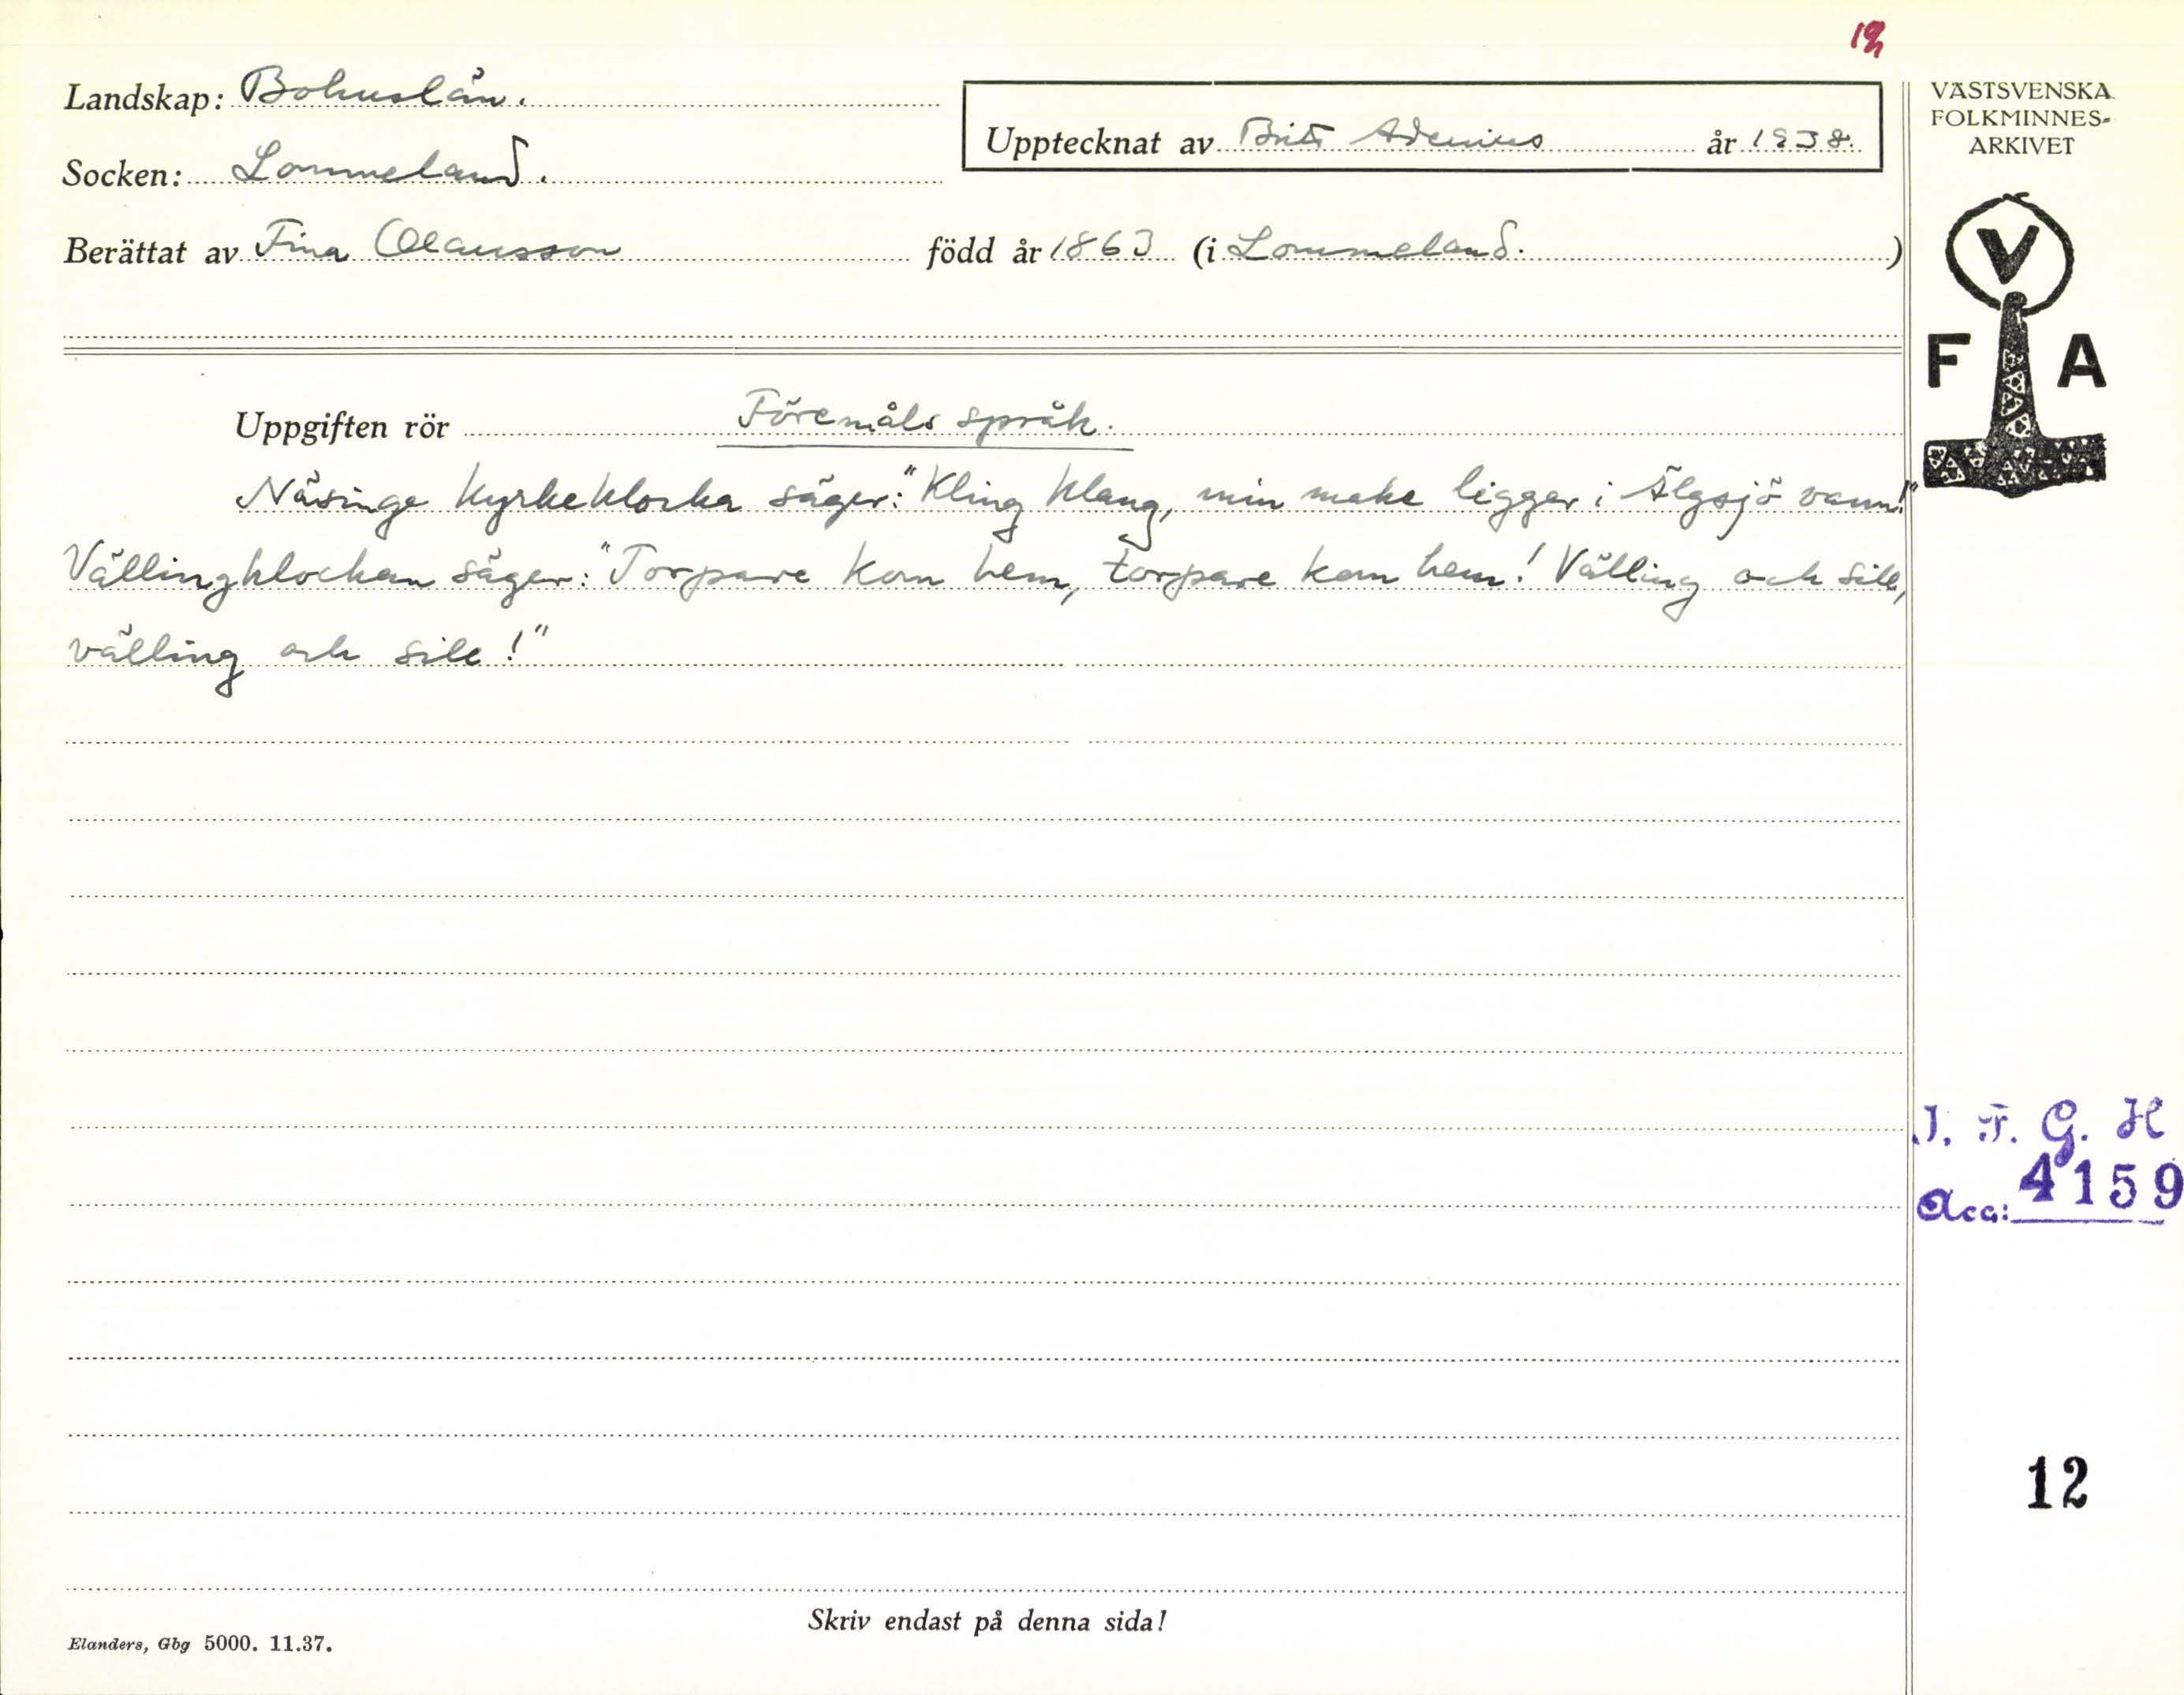 Landskap: Bohuslän.
Socken: Lommeland.
Upptecknat av Brita Adenius år 1938.
Berättat av Fina Olausson född år 1863 (i Lommeland.)
Uppgiften rör Föremåls språk.
Näsinge kyrkeklocka säger: "Kling klang, min make ligger i Älgsjö vann!"
Vällingklockan säger: "Torpare kom hem, torpare kom hem! Välling och sill,
välling och sill!"
Skriv endast på denna sida!
Elanders, Gbg 5000. 11.37.
VÄSTSVENSKA
FOLKMINNES-
ARKIVET
V
F A
I. F. G. H
Acc: 4159
12